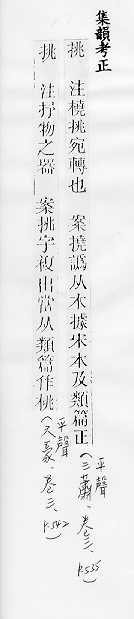 集韻考正
挑 注橈挑宛轉也 案撓譌从木據宋本及類篇正(平聲三蕭、卷三、P.535)
挑 注抒物之器 案挑字複出當从類篇作桃(平聲六豪、卷三、P.542)